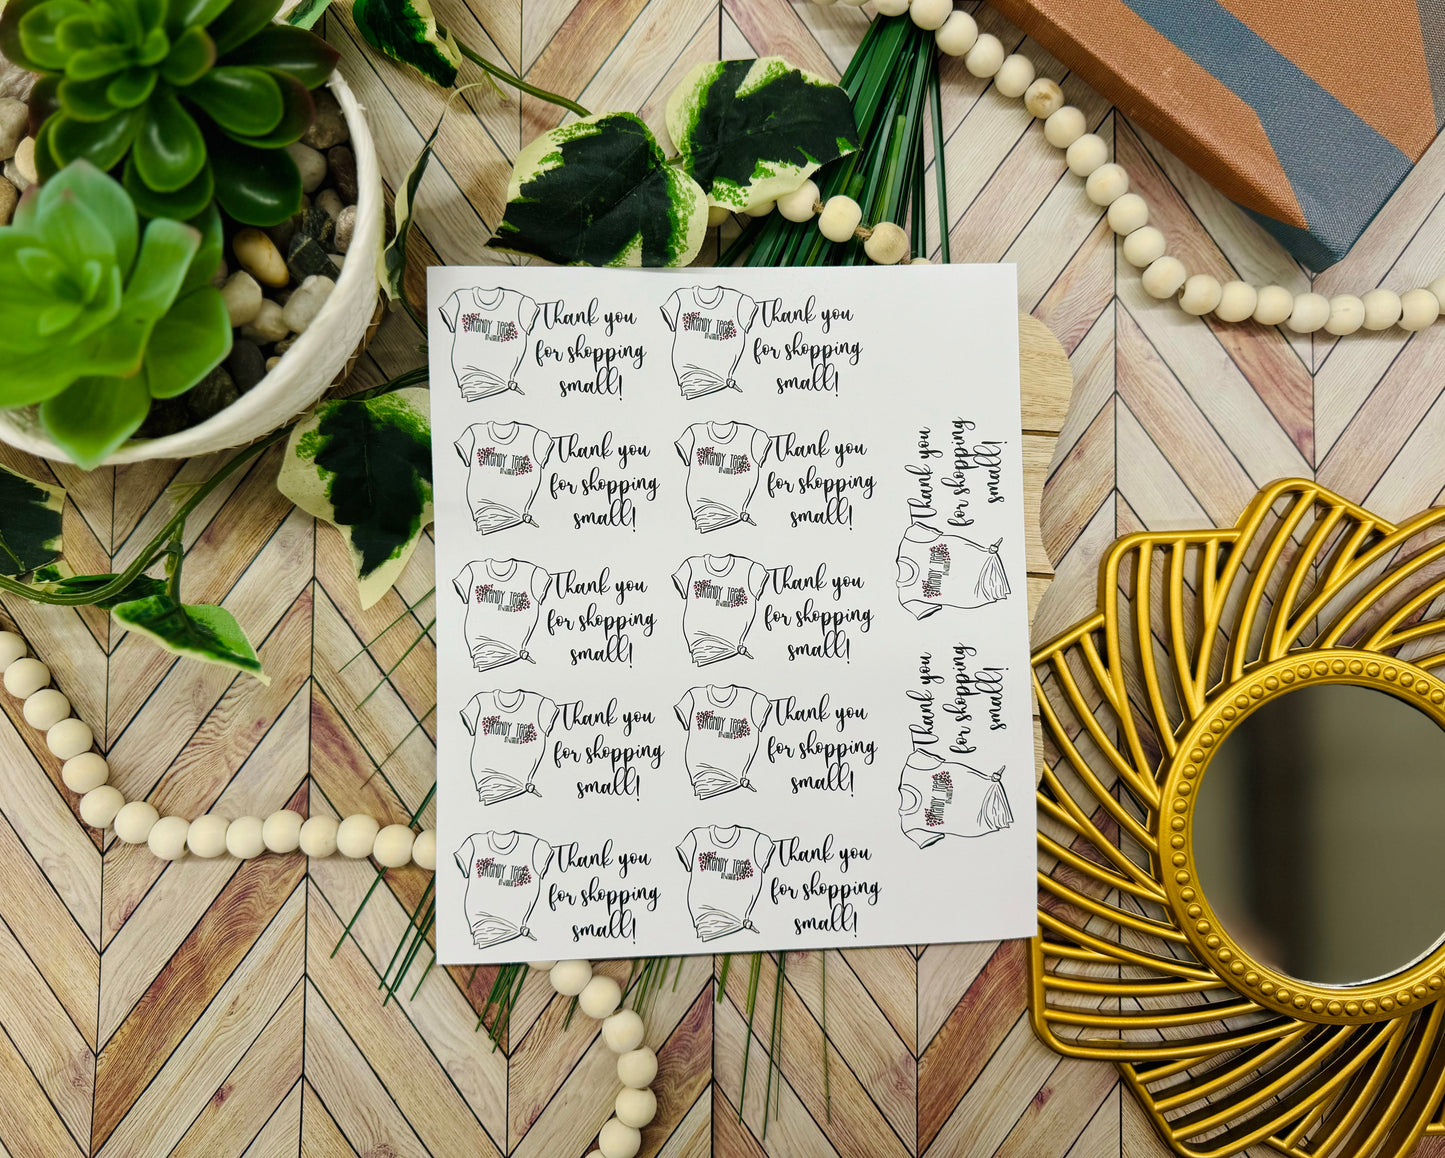 TRENDY TEES
Thank you
for shopping
small!
TRENDY TEES
Thank you
for shopping
small!
TRENDY TEES
Thank you
for shopping
small!
TRENDY TEES
Thank you
for shopping
small!
TRENDY TEES
Thank you
for shopping
small!
TRENDY TEES
Thank you
for shopping
small!
TRENDY TEES
Thank you
for shopping
small!
TRENDY TEES
Thank you
for shopping
small!
TRENDY TEES
Thank you
for shopping
small!
TRENDY TEES
Thank you
for shopping
small!
TRENDY TEES
Thank you
for shopping
small!
TRENDY TEES
Thank you
for shopping
small!